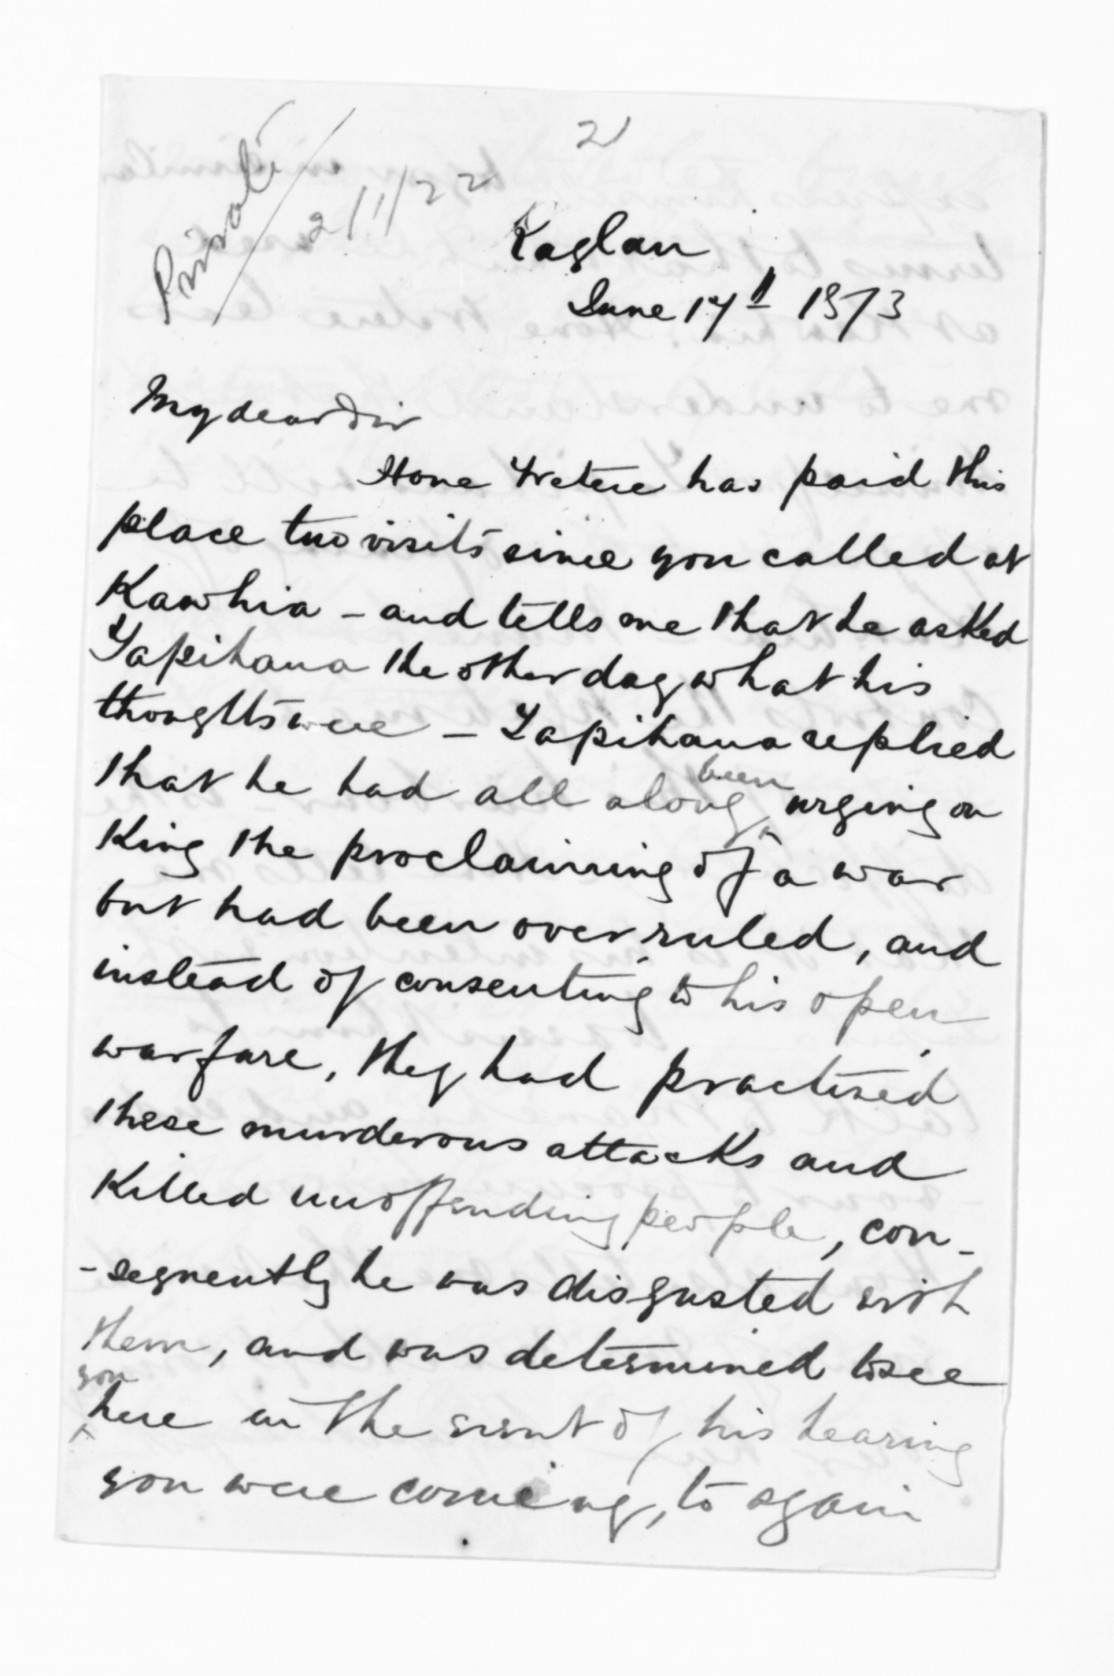 21
Private
2/1/22
Raglan
June 17th 1873
My dear Sir
Hone Wetere has paid this
place two visits since you called at
Kawhia - and tells me that he asked
Tapihana the other day what his
thoughts were - Tapihana replied
that he had all along been urging on
King the proclaiming of a war
but had been overruled, and
instead of consenting to his open
warfare, they had practised
these murderous attacks and
killed unoffending people, con-
-sequently he was disgusted with
them, and was determined to see
you
here in the event of his hearing
you were coming, to again